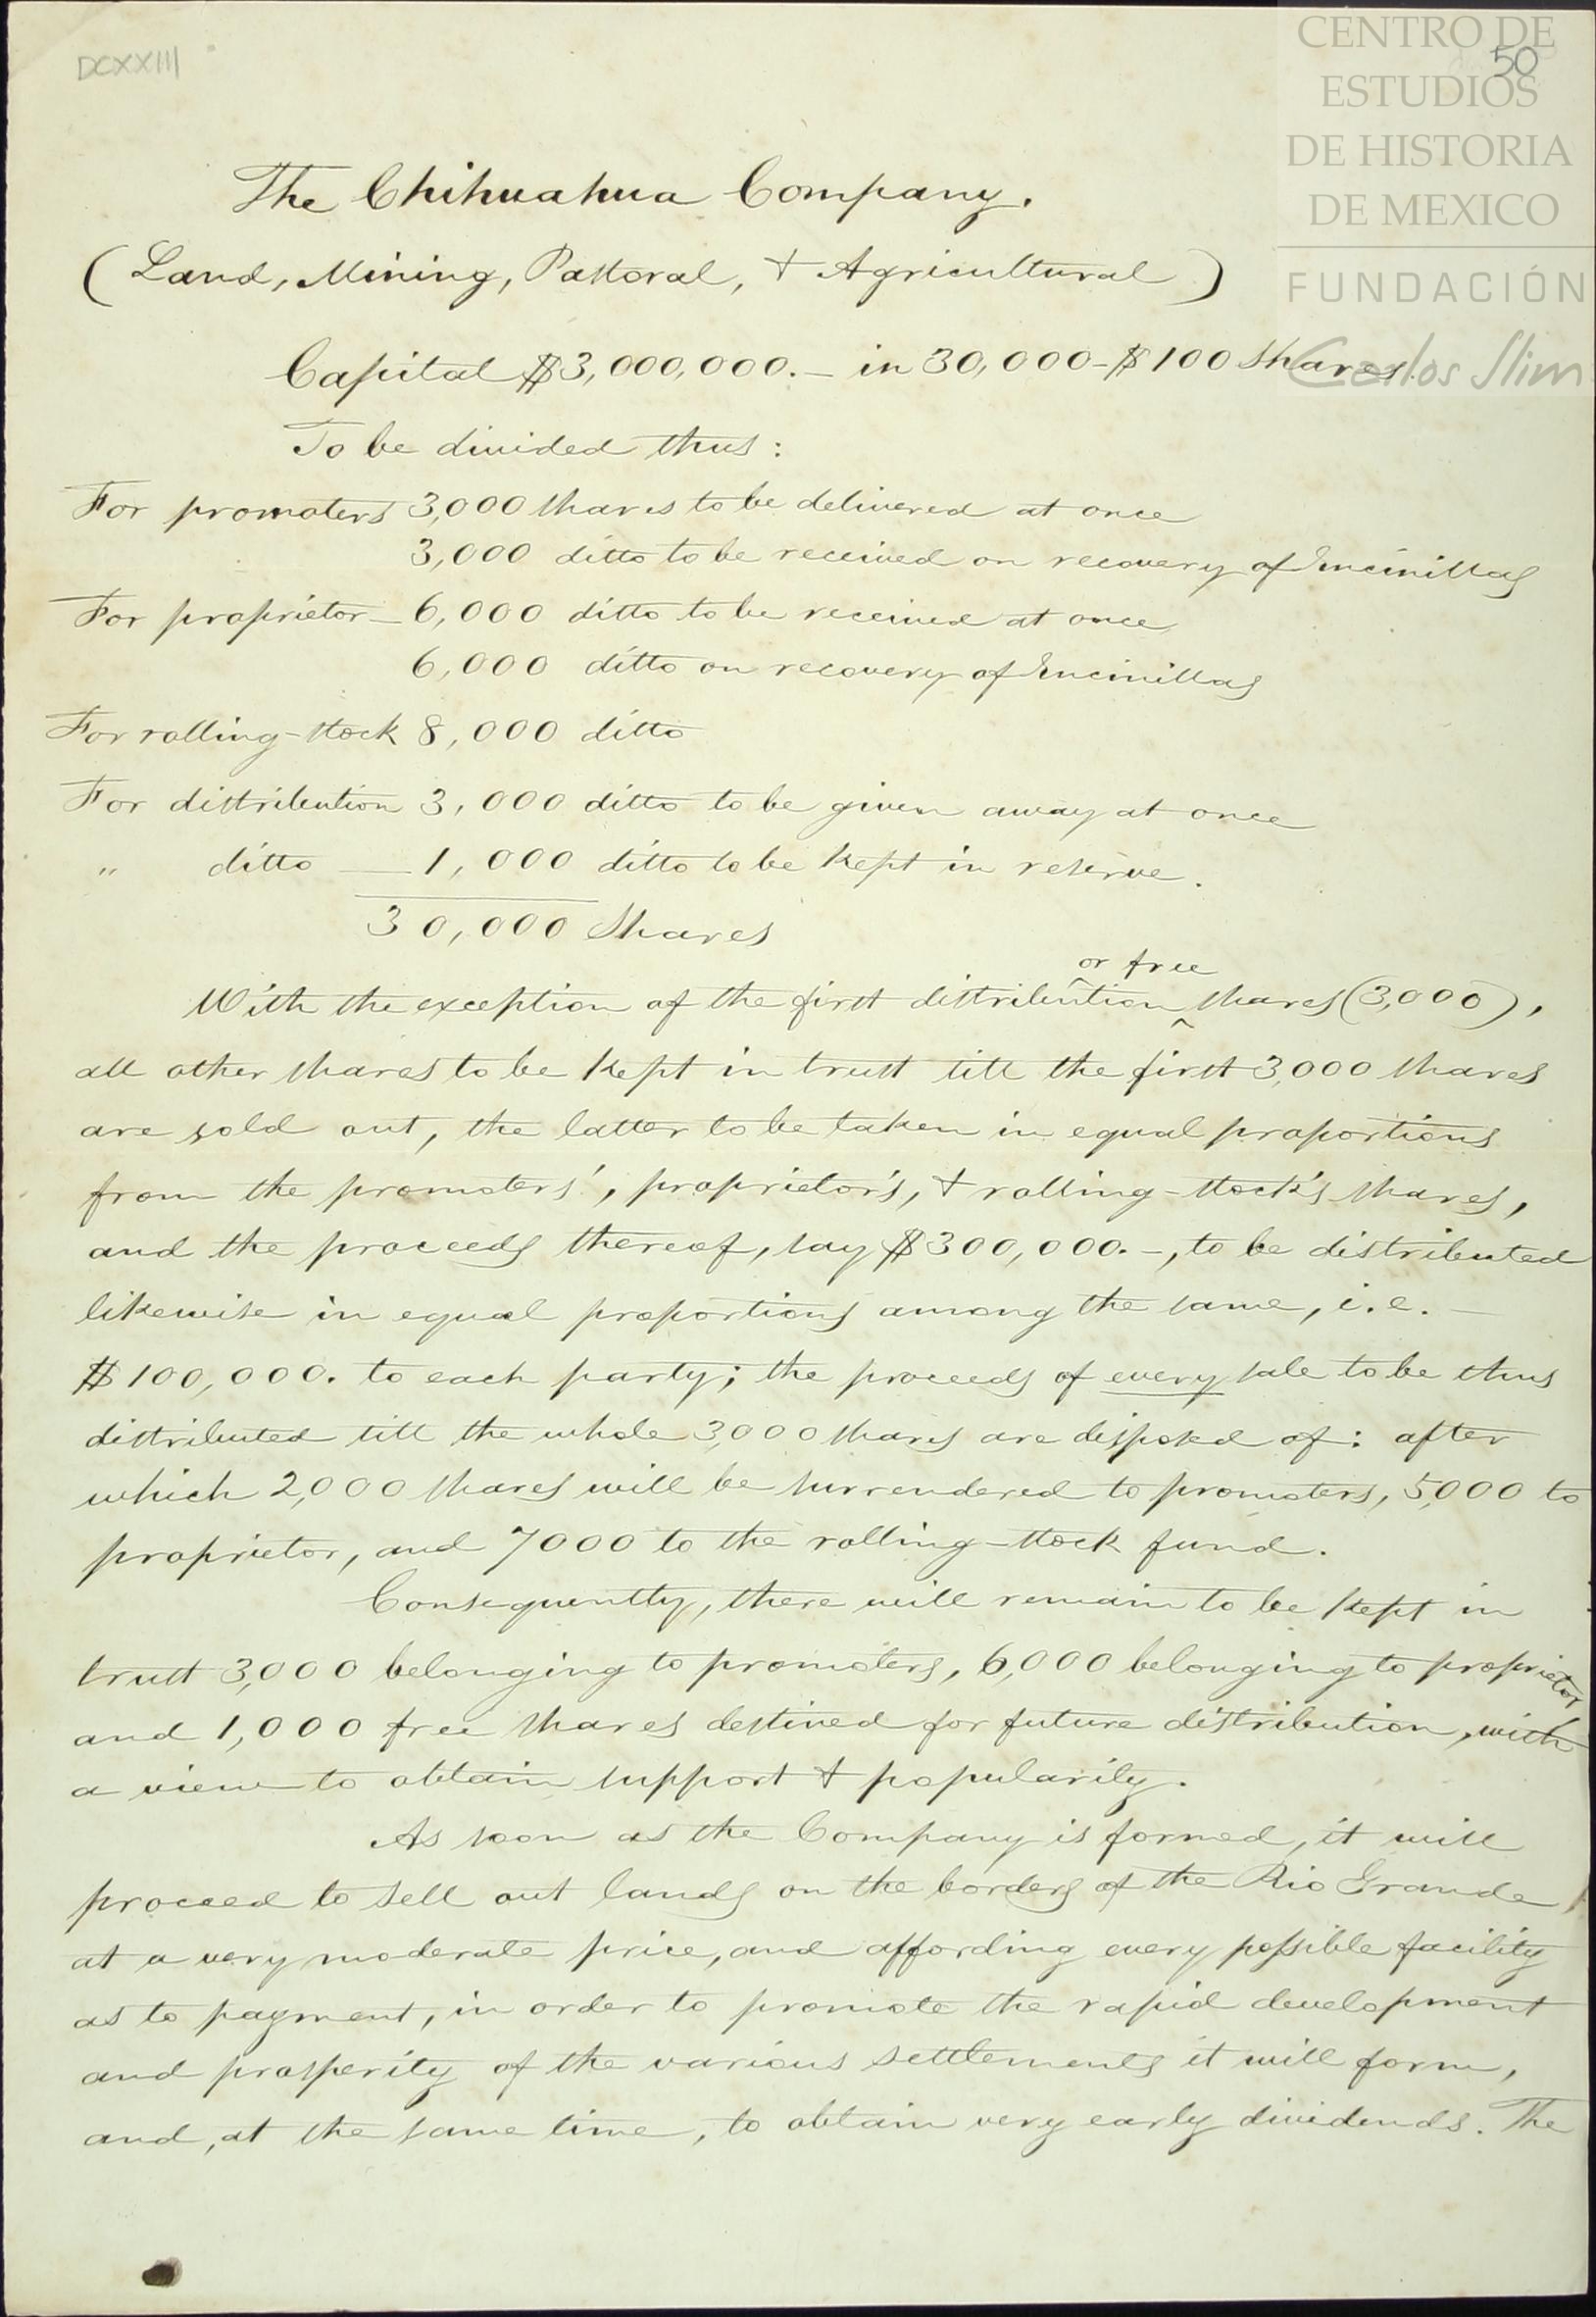 DCXXIII
50
CENTRO DE
ESTUDIOS
DE HISTORIA
DE MEXICO
FUNDACIÓN
Carlos Slim
The Chihuahua Company.
(Land, Mining, Pastoral, & Agricultural)
Capital $3,000,000.- in 30,000-$100 shares.
To be divided thus:
For promoters 3,000 shares to be delivered at once
3,000 ditto to be received on recovery of Encinillas
For proprietor - 6,000 ditto to be received at once
6,000 ditto on recovery of Encinillas
For rolling-stock 8,000 ditto
For distribution 3,000 ditto to be given away at once
" ditto 1,000 ditto to be kept in reserve.
30,000 Shares
or free
With the exception of the first distribution ^ shares (3,000),
all other shares to be kept in trust till the first 3,000 shares
are sold out, the latter to be taken in equal proportions
from the promoters', proprietor's, & rolling-stock's shares,
and the proceeds thereof, say $300,000.-, to be distributed
likewise in equal proportions among the same, i.e. -
$100,000. to each party; the proceeds of every sale to be thus
distributed till the whole 3,000 shares are disposed of: after
which 2,000 shares will be surrendered to promoters, 5,000 to
proprietor, and 7000 to the rolling-stock fund.
Consequently, there will remain to be kept in
trust 3,000 belonging to promoters, 6,000 belonging to proprietor
and 1,000 free shares destined for future distribution, with
a view to obtain support & popularity.
As soon as the Company is formed, it will
proceed to sell out lands on the borders of the Rio Grande,
at a very moderate price, and affording every possible facility
as to payment, in order to promote the rapid development
and prosperity of the various settlements it will form,
and, at the same time, to obtain very early dividends. The